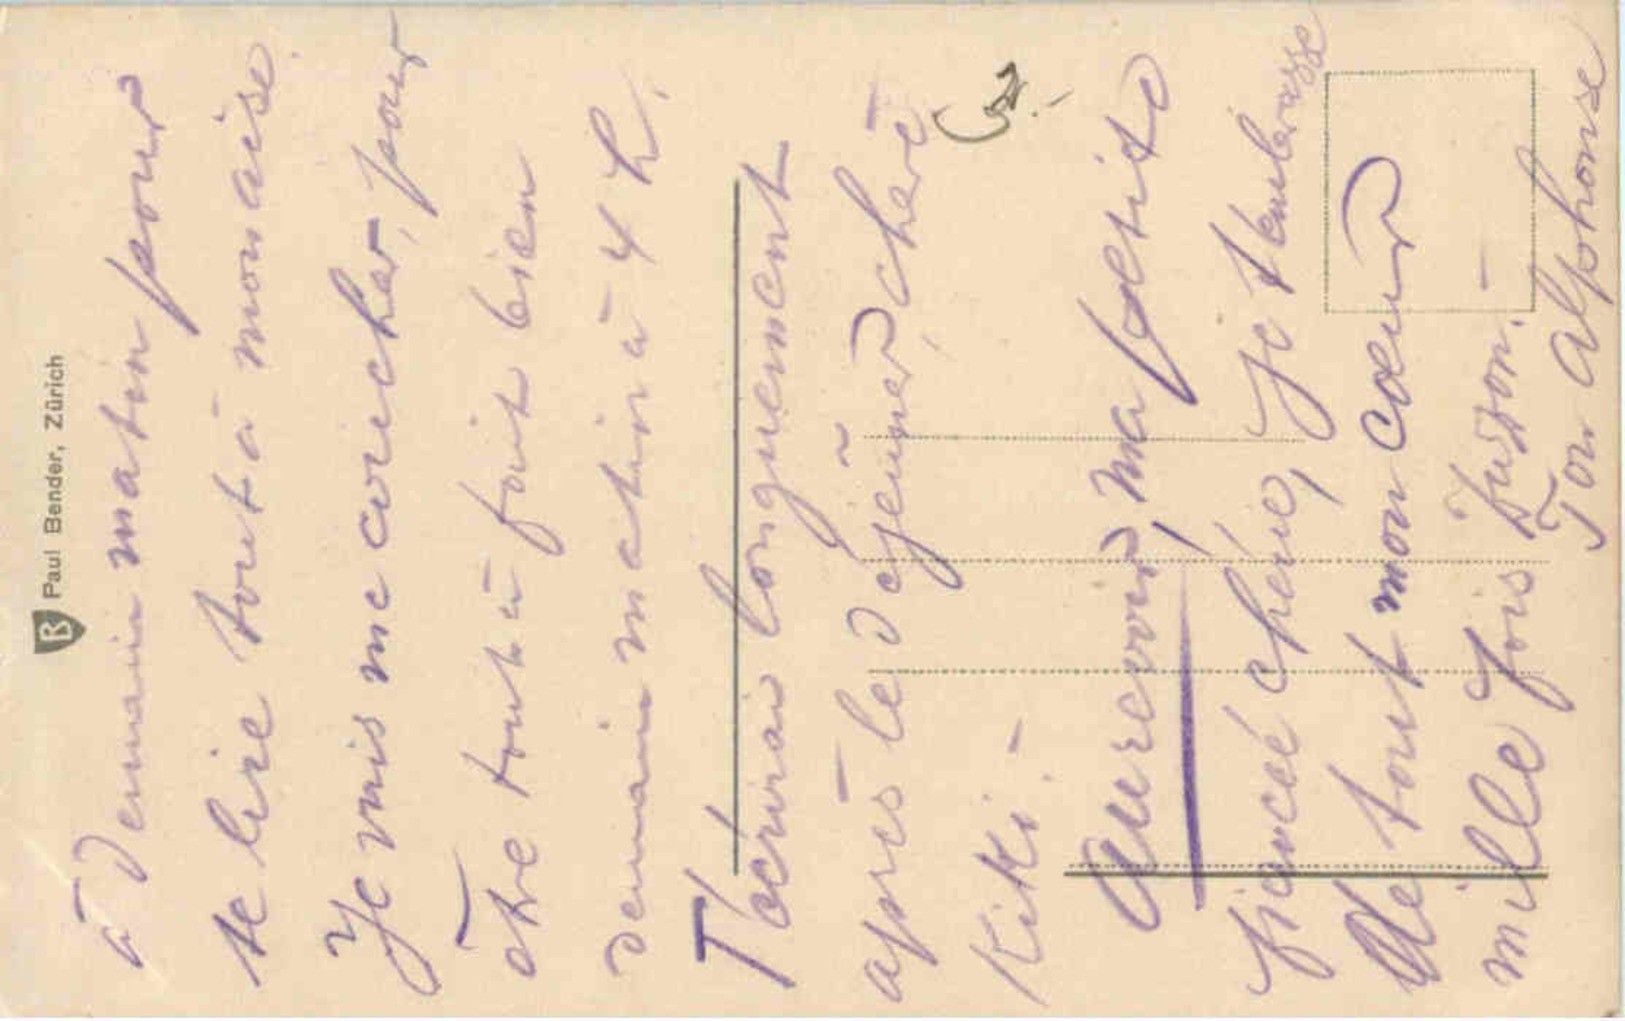 Paul Bender, Zürich
à demain matin pour
te lire tout à mon aise.
Je vais me coucher, pour
être tout à fait bien
demain matin à 4 h.
T'écrirai longuement
après le dejeuner, chère
Kiki. –
Au revoir, ma petite
fiancée chérie, Je t'embrasse
de tout mon coeur
mille fois
Ton Alphonse